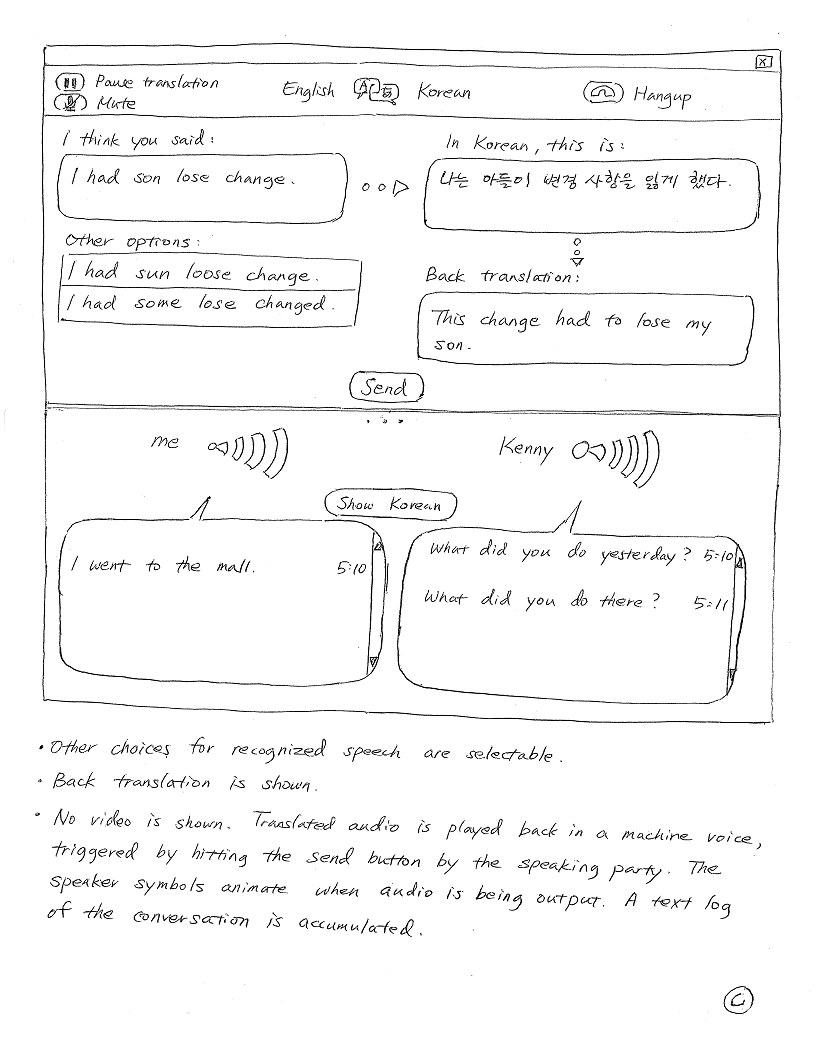 Pause translation
Mute
English A あ Korean
Hangup
I think you said:
I had son lose change.
Other options:
I had sun loose change.
I had some lose changed.
In Korean, this is:
나는 아들이 변경 사항을 잃게 했다.
Back translation:
This change had to lose my
son.
Send
me
Kenny
Show Korean
I went to the mall. 5:10
What did you do yesterday? 5:10
What did you do there? 5:11
• Other choices for recognized speech are selectable.
• Back translation is shown.
• No video is shown. Translated audio is played back in a machine voice,
triggered by hitting the send button by the speaking party. The
speaker symbols animate when audio is being output. A text log
of the conversation is accumulated.
C